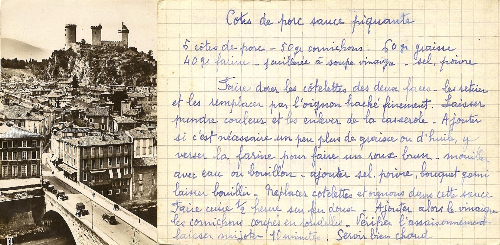 Côtes de porc sauce piquante
5 côtes de porc - 50gr cornichons. 50 gr graisse
40gr farine - cuillerée à soupe vinaigre - sel, poivre
Faire dorer les côtelettes des deux faces - les retirer
et les remplacer par l'oignon haché finement. Laisser
prendre couleur et les enlever de la casserole - Ajouter
si c'est nécessaire un peu plus de graisse ou d'huile, y
verser la farine pour faire un roux brun - mouiller
avec eau ou bouillon - ajouter sel, poivre, bouquet garni
laisser bouillir - Replacer côtelettes et oignons dans cette sauce
Faire cuire ½ heure sur feu doux - Ajouter alors le vinaigre
les cornichons coupés en rondelles. Vérifier l'assaisonnement
laisser mijoter 10 minutes. Servir bien chaud